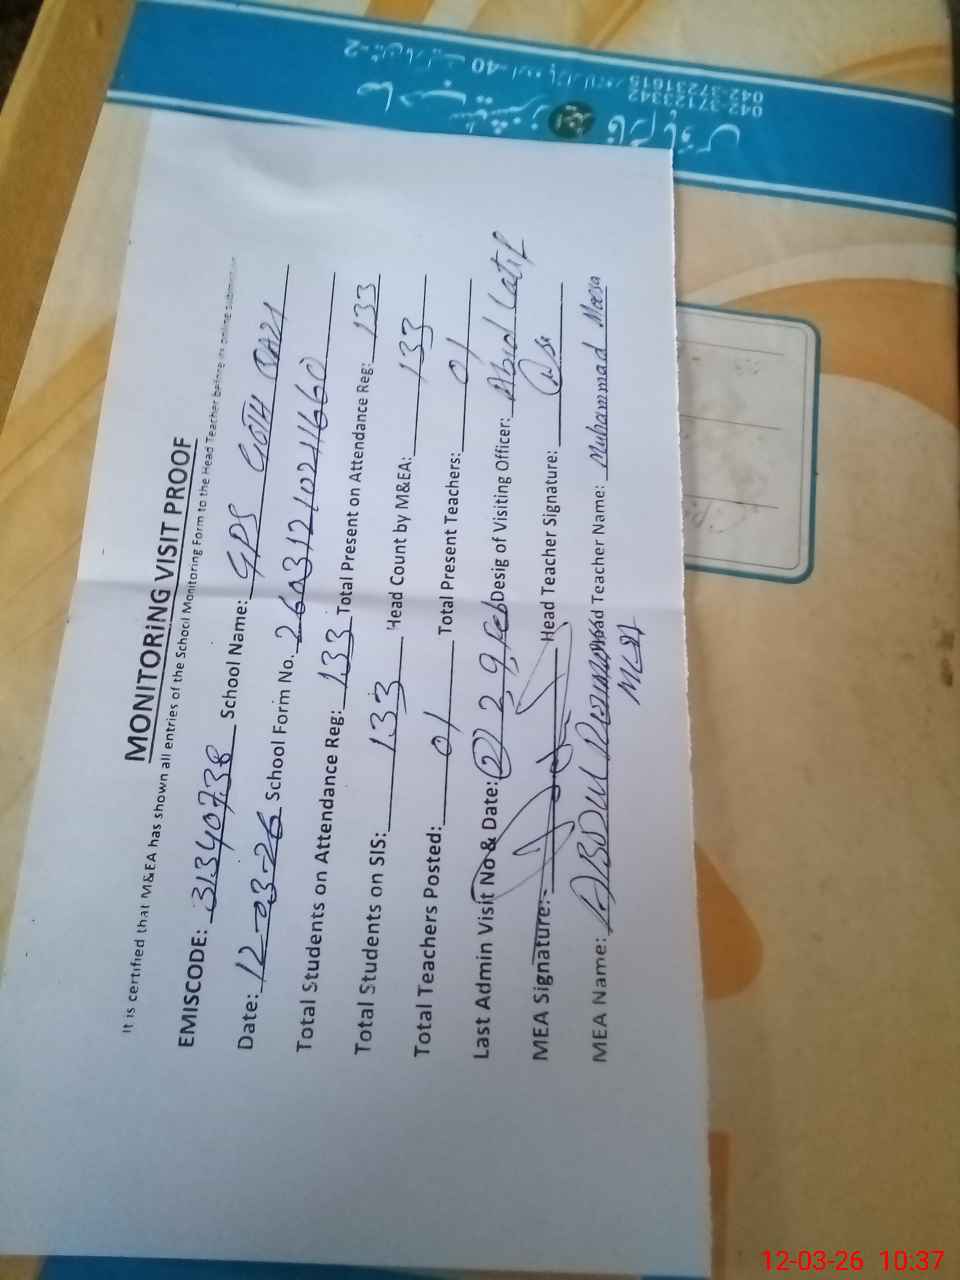 MONITORING VISIT PROOF
It is certified that M&EA has shown all entries of the School Monitoring Form to the Head Teacher before its online
EMISCODE: 31340738 School Name: GPS GOTH
Date: 12-03-26 School Form No. 26031210211660
Total Students on Attendance Reg: 133 Total Present on Attendance Reg: 133
Total Students on SIS: 133 Head Count by M&EA: 133
Total Teachers Posted: 01 Total Present Teachers: 01
Last Admin Visit No & Date: (2) 2,9 Feb Desig of Visiting Officer: Abid Latif
MEA Signature: Head Teacher Signature:
MEA Name: ABDUL Head Teacher Name: Muhammad
042-37123342
042-37231615
12-03-26 10:37